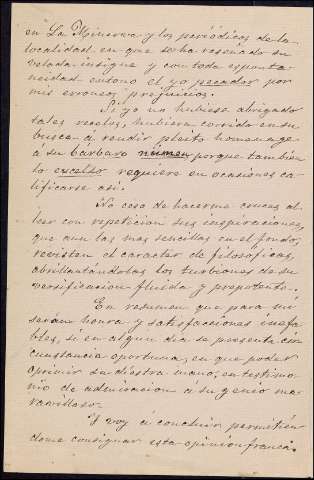 en La Minerva y los periódicos de la
localidad en que se ha reseñado su
velada insigne y con toda esponta-
neidad entono el yo pecador por
mis erroneos prejuicios.
Si yo no hubiese abrigado
tales recelos, hubiera corrido en su
busca á rendir pleito homenage
á su bárbaro númen porque tambien
lo excelso requiere en ocasiones ca-
lificarse asi.
No ceso de hacerme cruces al
leer con repeticion sus inspiraciones,
que aun las mas sencillas en el fondo,
revisten el caracter de filosoficas,
abrillantandolas los turbiones de su
versificacion fluida y prepotente.
En resumen que para mi
serán honra y satisfacciones inefa-
bles, si en algun dia se presenta cir-
cunstancia oportuna, en que poder
oprimir su diestra mano, en testimo-
nio de admiracion á su genio ma-
ravilloso.
Y voy á concluir permitien-
dome consignar esta opinion franca.